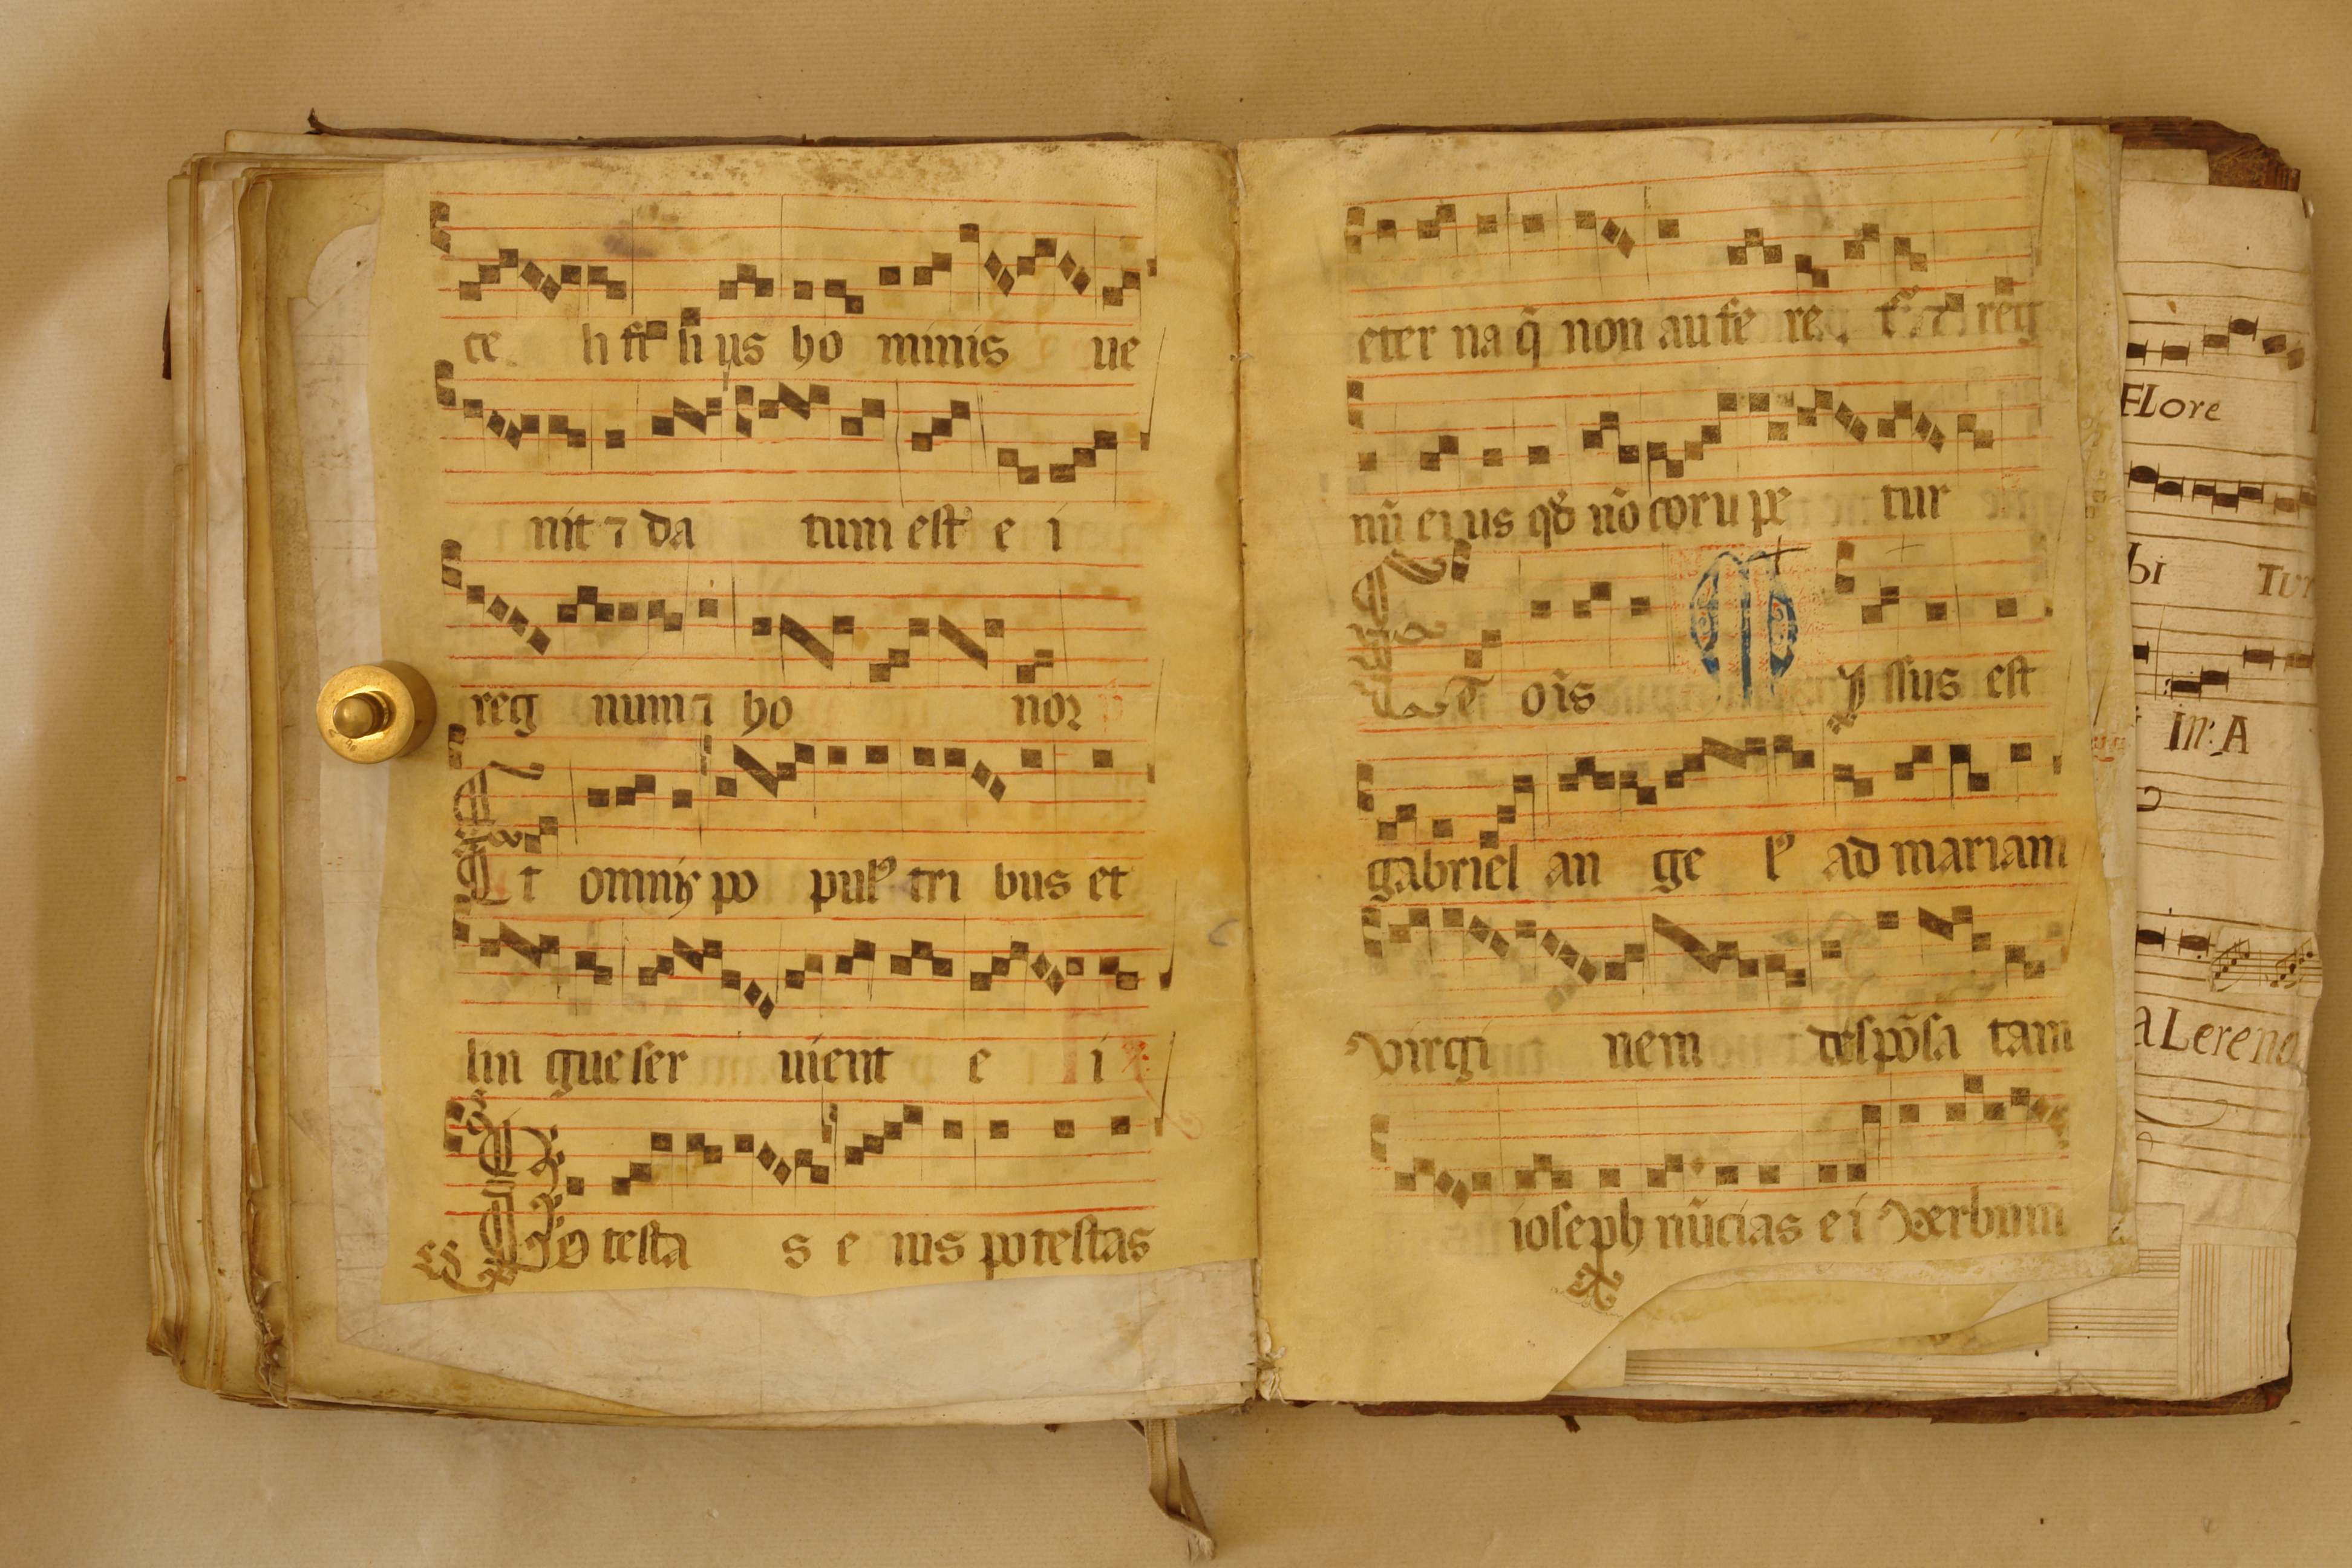 ce li fi li us ho minis ue
nit ⁊ da tum est e i
reg num ⁊ ho nor
Et omnis po pulꝰ tri bus et
lin gue ser uient e i
Po testa s e ius potestas
eter na q̃ non au fe re t᷑ ⁊ reg
nũ ei us qđ nõ coru pe tur
Et oĩs Missus est
gabriel an ge lꝰ ad mariam
virgi nem despõsa tam
ioseph nũcias e i verbum
FLore
bi Tur
In: A
a Lerena